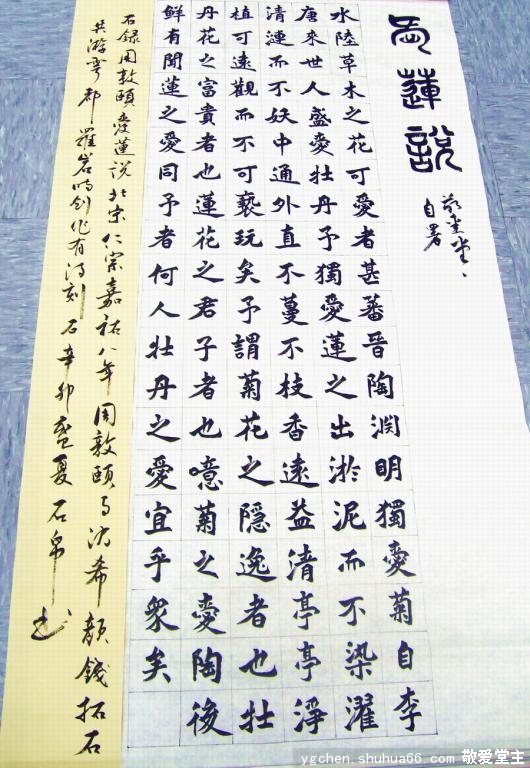 愛蓮說
自署
水陸草木之花可愛者甚蕃晉陶渊明獨愛菊自李
唐來世人盛愛牡丹予獨愛蓮之出淤泥而不染濯
清漣而不妖中通外直不蔓不枝香遠益清亭亭淨
植可遠觀而不可褻玩矣予謂菊花之隱逸者也牡
丹花之富貴者也蓮花之君子者也噫菊之愛陶後
鮮有聞蓮之愛同予者何人牡丹之愛宜乎衆矣
右錄周敦頤愛蓮說北宋仁宗嘉祐八年周敦頤与沈希顏錢拓石
共游雩都羅岩作有詩刻石辛卯盛夏石帛书
ygchen.shuhua66.com 敬爱堂主